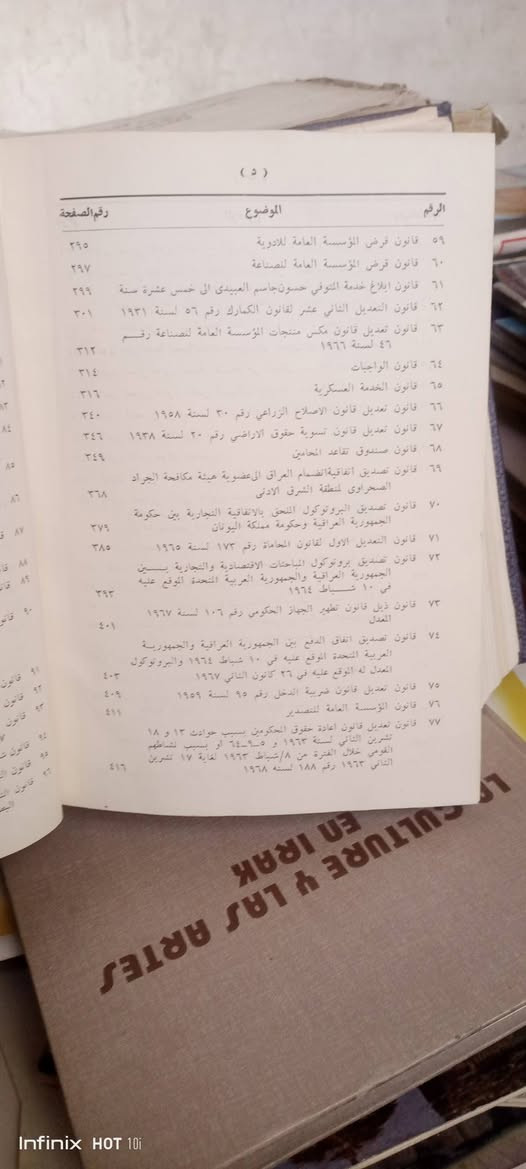 ( ٥ )
الرقم الموضوع رقم الصفحة
٥٩ قانون قرض المؤسسة العامة للادوية ٢٩٥
٦٠ قانون قرض المؤسسة العامة للصناعة ٢٩٧
٦١ قانون إبلاغ خدمة المتوفي حسون جاسم العبيدي الى خمس عشرة سنة ٢٩٩
٦٢ قانون التعديل الثاني عشر لقانون الكمارك رقم ٥٦ لسنة ١٩٣١ ٣٠١
٦٣ قانون تعديل قانون مكس منتجات المؤسسة العامة للصناعة رقــم
٤٦ لسنة ١٩٦٦ ٣١٢
٦٤ قانون الواجبات ٣١٤
٦٥ قانون الخدمة العسكرية ٣١٦
٦٦ قانون تعديل قانون الاصلاح الزراعي رقم ٣٠ لسنة ١٩٥٨ ٣٤٠
٦٧ قانون تعديل قانون تسوية حقوق الاراضي رقم ٢٠ لسنة ١٩٣٨ ٣٤٦
٦٨ قانون صندوق تقاعد المحامين ٣٤٩
٦٩ قانون تصديق إتفاقية انضمام العراق الى عضوية هيئة مكافحة الجراد
الصحراوي لمنطقة الشرق الادنى ٣٦٨
٧٠ قانون تصديق البروتوكول الملحق بالاتفاقية التجارية بين حكومة
الجمهورية العراقية وحكومة مملكة اليونان ٣٧٩
٧١ قانون التعديل الاول لقانون المحاماة رقم ١٧٣ لسنة ١٩٦٥ ٣٨٥
٧٢ قانون تصديق بروتوكول المباحثات الاقتصادية والتجارية بـــين
الجمهورية العراقية والجمهورية العربية المتحدة الموقع عليه
في ١٠ شـــباط ١٩٦٤ ٣٩٣
٧٣ قانون ذيل قانون تطهير الجهاز الحكومي رقم ١٠٦ لسنة ١٩٦٧
المعدل ٤٠١
٧٤ قانون تصديق اتفاق الدفع بين الجمهورية العراقية والجمهوريـة
العربية المتحدة الموقع عليه في ١٠ شباط ١٩٦٤ والبروتوكول
المعدل له الموقع عليه في ٢٦ كانون الثاني ١٩٦٧ ٤٠٣
٧٥ قانون تعديل قانون ضريبة الدخل رقم ٩٥ لسنة ١٩٥٩ ٤٠٩
٧٦ قانون المؤسسة العامة للتصدير ٤١١
٧٧ قانون تعديل قانون اعادة حقوق المحكومين بسبب حوادث ١٣ و ١٨
تشرين الثاني لسنة ١٩٦٣ و ٥-٩-٦٤ او بسبب نشاطهم
القومي خلال الفترة من ٨/شباط ١٩٦٣ لغاية ١٧ تشرين
الثاني ١٩٦٣ رقم ١٨٨ لسنة ١٩٦٨ ٤١٦
٨٤
٨٥
٨٦
٨٧
٨٨ قانون
٨٩ قانون
٩٠ قانون
٩١ قانون
٩٢ قانون
٩٣ قانون
٩٤ قانون
٩٥ قانون
٩٦ قانون
LA CULTURE Y LAS ARTES
EN IRAK
Infinix HOT 10i